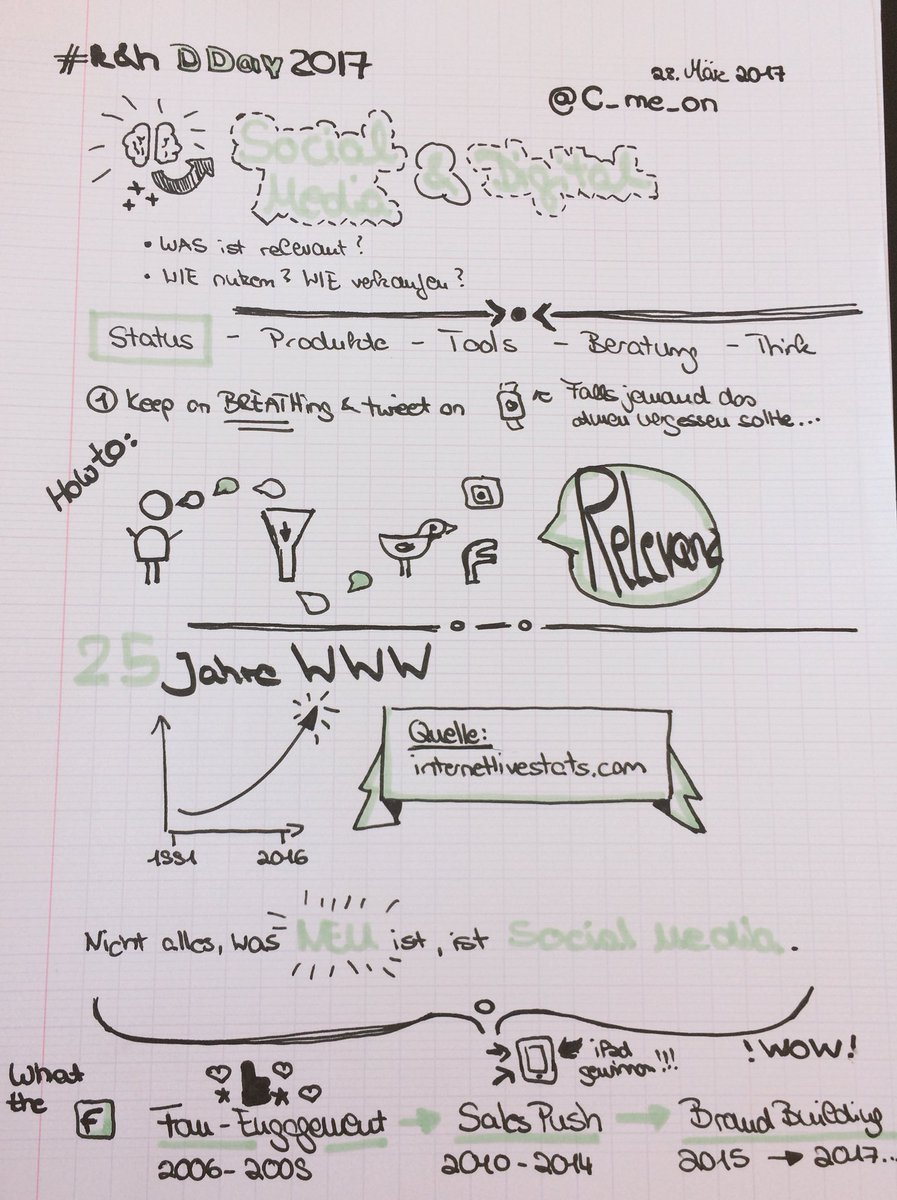 #k&h DDay 2017
28. März 2017
@C_me_on
Social Media & Digital
• WAS ist relevant?
• WIE nutzen? WIE verkaufen?
Status - Produkte - Tools - Beratung - Think
① Keep on BREATHing & tweet on
Falls jemand das
atmen vergessen sollte...
How to:
F
Relevanz
25 Jahre WWW
Quelle:
internetlivestats.com
1991 2016
Nicht alles, was NEU ist, ist Social Media.
What
the
F
iPad
gewinnen!!!
!WOW!
Fan-Engagement → Sales Push → Brand Building
2006-2009 2010-2014 2015 → 2017...